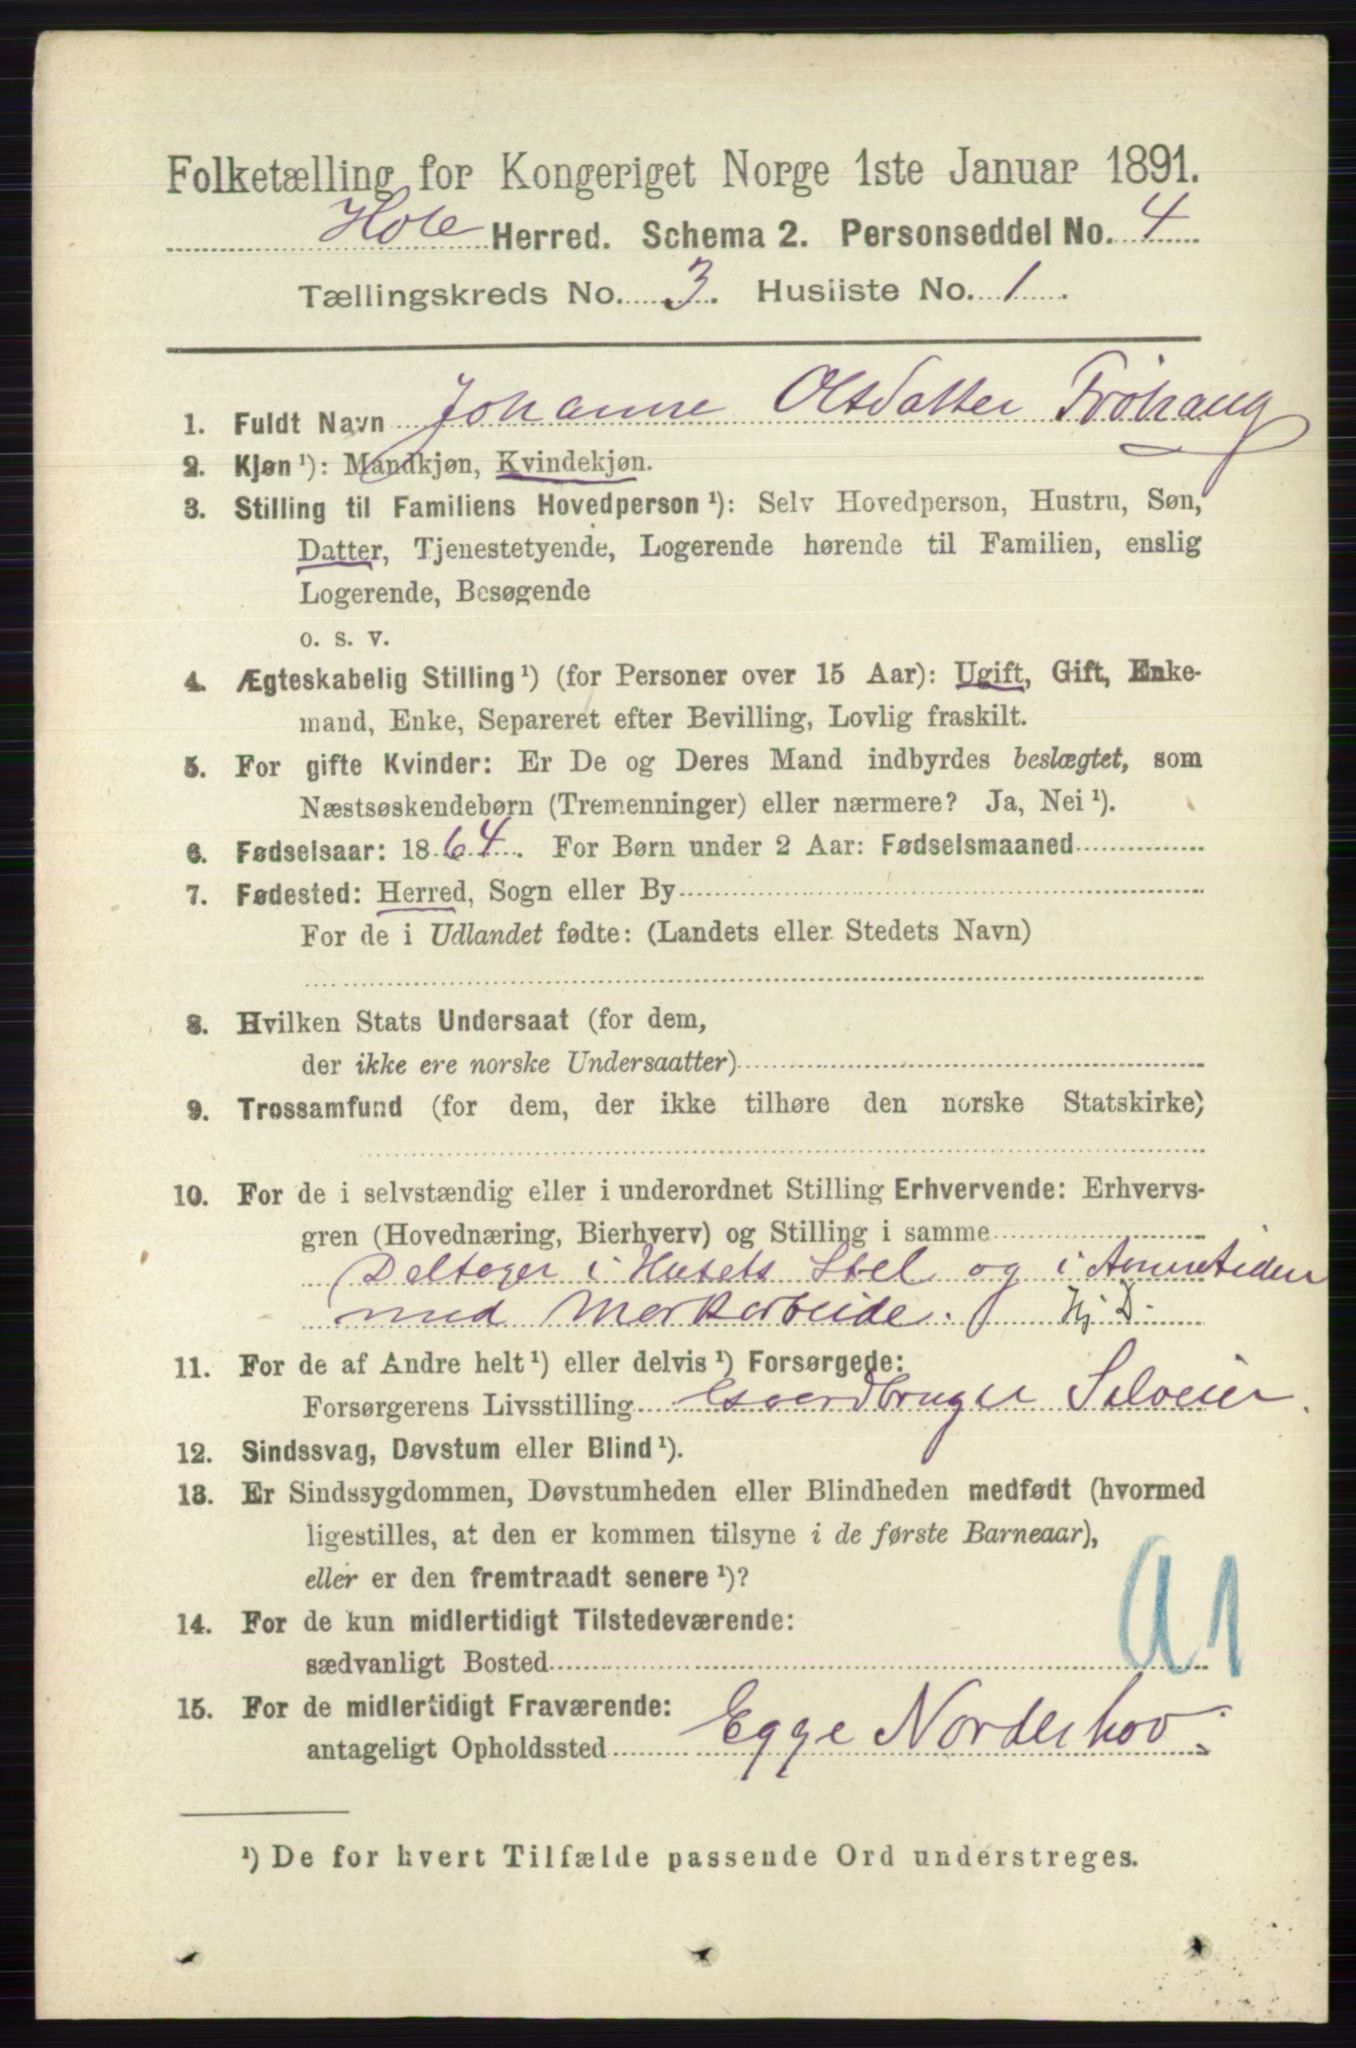 Folketælling for Kongeriget Norge 1ste Januar 1891.
Hole Herred. Schema 2. Personseddel No. 4
Tællingskreds No. 3. Husliste No. 1.
1. Fuldt Navn Johanne Olsdatter Fröhaug
2. Kjøn ¹): Mandkjøn, Kvindekjøn.
3. Stilling til Familiens Hovedperson ¹): Selv Hovedperson, Hustru, Søn,
Datter, Tjenestetyende, Logerende hørende til Familien, enslig
Logerende, Besøgende
o. s. v.
4. Ægteskabelig Stilling ¹) (for Personer over 15 Aar): Ugift, Gift, Enke-
mand, Enke, Separeret efter Bevilling, Lovlig fraskilt.
5. For gifte Kvinder: Er De og Deres Mand indbyrdes beslægtet, som
Næstsøskendebørn (Tremenninger) eller nærmere? Ja, Nei ¹).
6. Fødselsaar: 1864. For Børn under 2 Aar: Fødselsmaaned
7. Fødested: Herred, Sogn eller By
For de i Udlandet fødte: (Landets eller Stedets Navn)
8. Hvilken Stats Undersaat (for dem,
der ikke ere norske Undersaatter)
9. Trossamfund (for dem, der ikke tilhøre den norske Statskirke)
10. For de i selvstændig eller i underordnet Stilling Erhvervende: Erhvervs-
gren (Hovednæring, Bierhverv) og Stilling i samme
Deltager i Husets Stel og i Annetiden
med Markarbeide. Hj D.
11. For de af Andre helt ¹) eller delvis ¹) Forsørgede:
Forsørgerens Livsstilling Gaardbruger Selveier.
12. Sindssvag, Døvstum eller Blind ¹).
13. Er Sindssygdommen, Døvstumheden eller Blindheden medfødt (hvormed
ligestilles, at den er kommen tilsyne i de første Barneaar),
eller er den fremtraadt senere ¹)?
14. For de kun midlertidigt Tilstedeværende:
sædvanligt Bosted
a1
15. For de midlertidigt Fraværende:
antageligt Opholdssted Egge Norderhov.
¹) De for hvert Tilfælde passende Ord understreges.